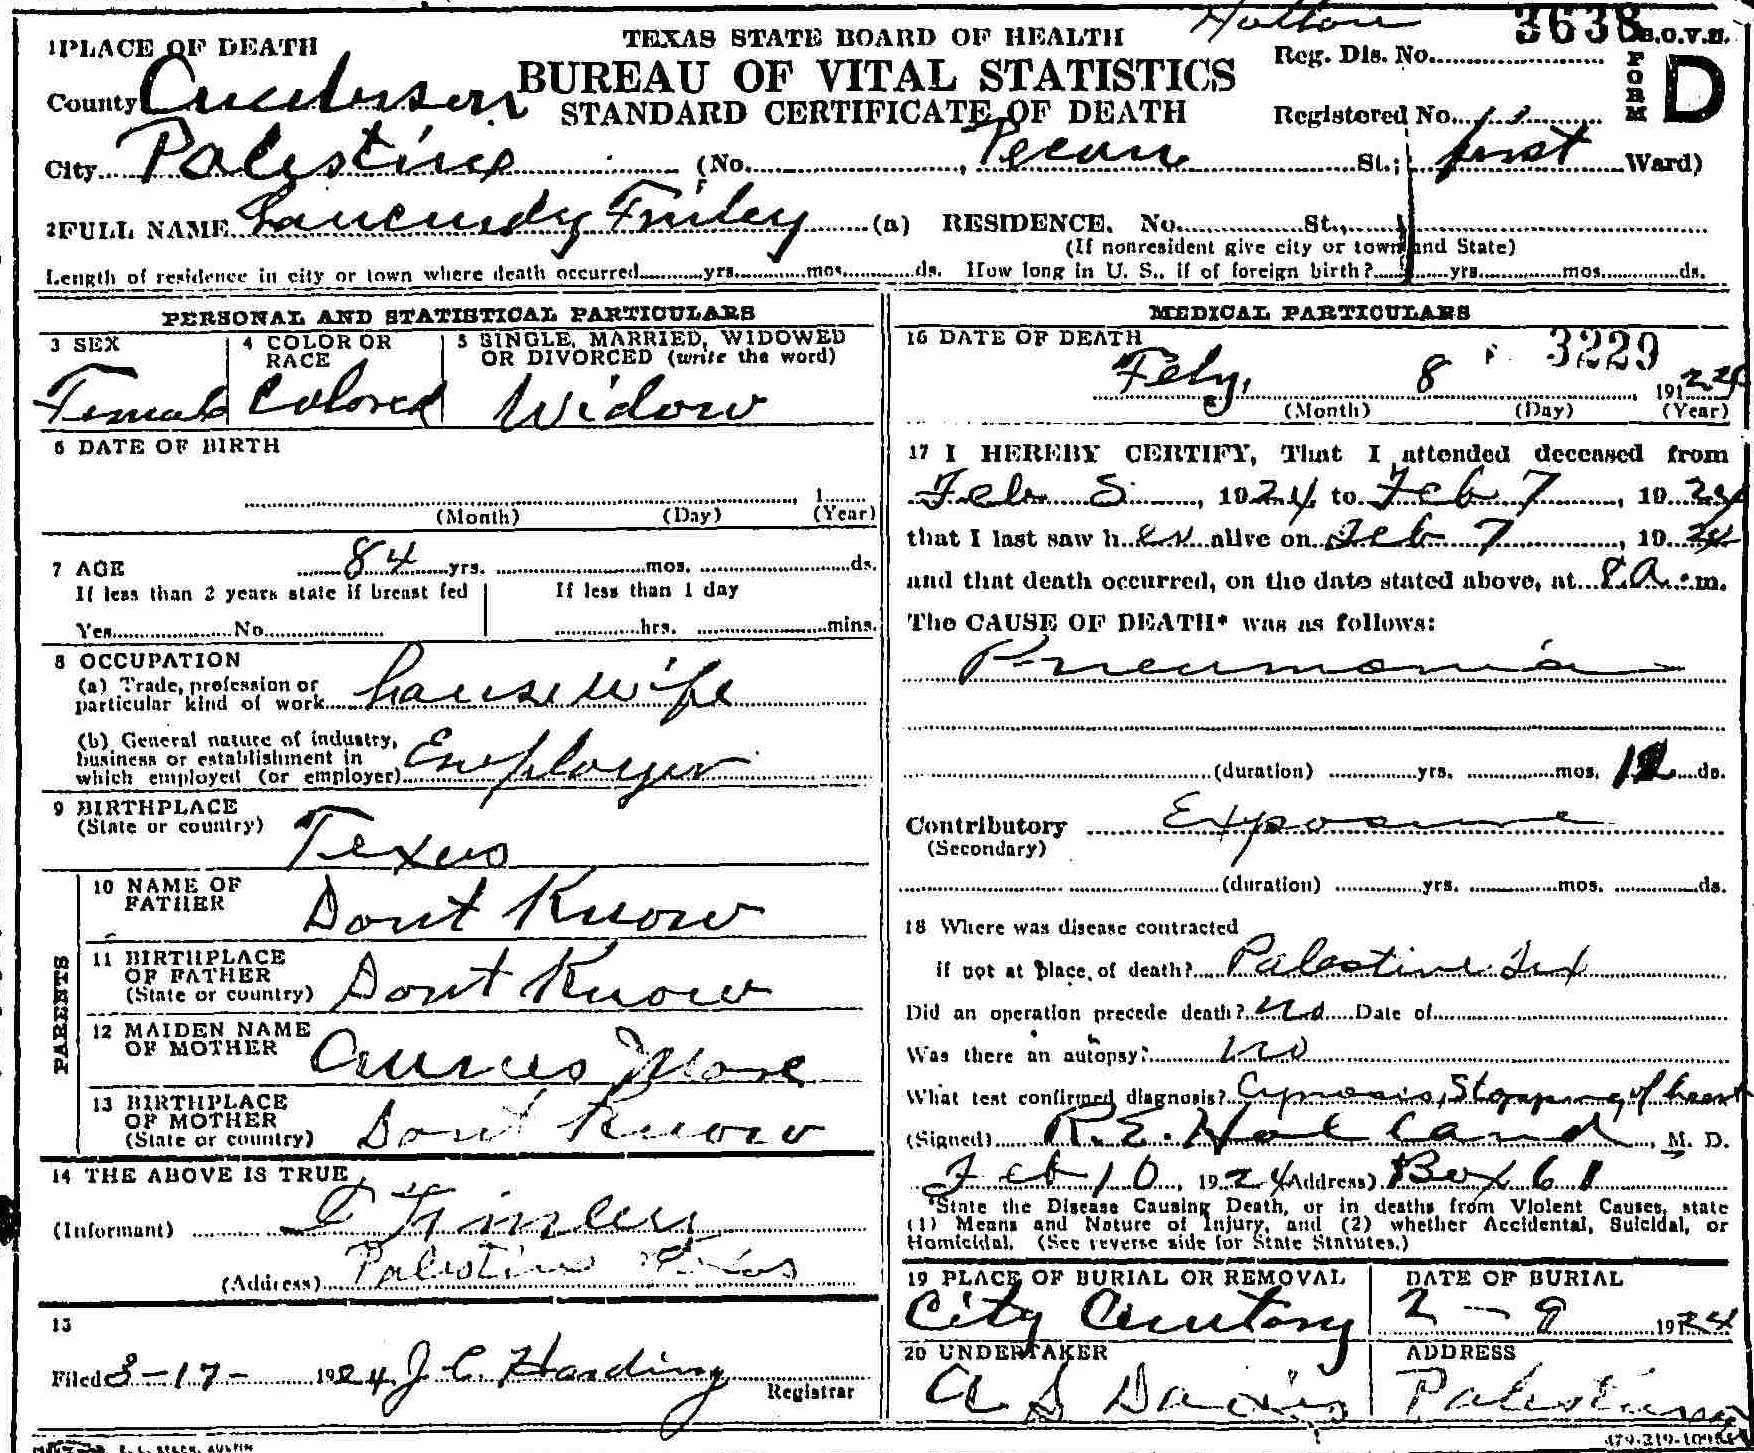 Holton 3638 B.O.V.S.
1 PLACE OF DEATH TEXAS STATE BOARD OF HEALTH Reg. Dis. No. FORM D
BUREAU OF VITAL STATISTICS
County Anderson STANDARD CERTIFICATE OF DEATH Registered No.
City Palestine (No. , Pecan St.; first Ward)
2 FULL NAME Finley (a) RESIDENCE. No. St.,
(If nonresident give city or town and State)
Length of residence in city or town where death occurred yrs. mos. ds. How long in U. S., if of foreign birth? yrs. mos. ds.
PERSONAL AND STATISTICAL PARTICULARS
3 SEX Female
4 COLOR OR RACE Colored
5 SINGLE, MARRIED, WIDOWED OR DIVORCED (write the word) Widow
6 DATE OF BIRTH
, 1
(Month) (Day) (Year)
7 AGE 84 yrs. mos. ds.
If less than 2 years state if breast fed If less than 1 day
Yes No hrs. mins.
8 OCCUPATION
(a) Trade, profession or
particular kind of work housewife
(b) General nature of industry,
business or establishment in
which employed (or employer) Employer
9 BIRTHPLACE
(State or country) Texas
PARENTS
10 NAME OF FATHER Dont Know
11 BIRTHPLACE OF FATHER
(State or country) Dont Know
12 MAIDEN NAME OF MOTHER
13 BIRTHPLACE OF MOTHER
(State or country) Dont Know
14 THE ABOVE IS TRUE
(Informant) Finley
(Address) Palestine Texas
15
Filed 3-17- 1924 J. C. Harding
Registrar
MEDICAL PARTICULARS
16 DATE OF DEATH 3229
Feby. 8 1924
(Month) (Day) (Year)
17 I HEREBY CERTIFY, That I attended deceased from
Feb 5, 1924 to Feb 7, 1924
that I last saw her alive on Feb 7, 1924
and that death occurred, on the date stated above, at 8 a.m.
The CAUSE OF DEATH* was as follows:
Pneumonia
(duration) yrs. mos. ds.
Contributory Exposure
(Secondary)
(duration) yrs. mos. ds.
18 Where was disease contracted
if not at place of death? Palestine Tex
Did an operation precede death? no Date of
Was there an autopsy? no
What test confirmed diagnosis? Cynosis, Stopping of heart
(Signed) R. E. Holland, M. D.
Feb 10, 1924 (Address) Box 61
*State the Disease Causing Death, or in deaths from Violent Causes, state
(1) Means and Nature of Injury, and (2) whether Accidental, Suicidal, or
Homicidal. (See reverse side for State Statutes.)
19 PLACE OF BURIAL OR REMOVAL DATE OF BURIAL
City Cemetery 2-9 1924
20 UNDERTAKER ADDRESS
A S Davis Palestine